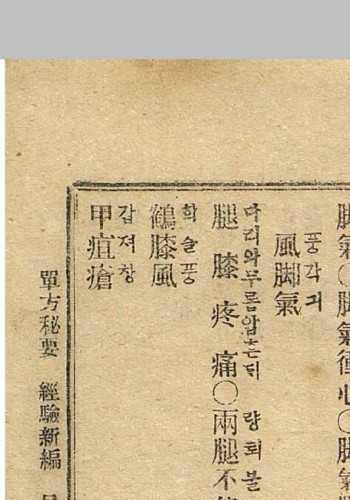 脚氣〇脚氣衝心〇脚氣
풍각긔
風脚氣
다리와무름압흔뒤 량퇴불
腿膝疼痛〇兩腿不
학슬풍
鶴膝風
갑져창
甲疽瘡
單方秘要 經驗新編